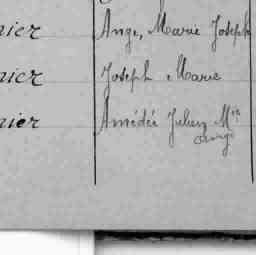 nier Ange, Marie Joseph
nier Joseph Marie
nier Amédée Julien Mie